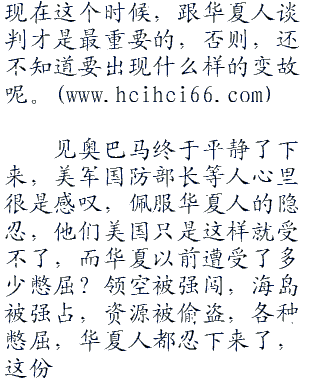 现在这个时候，跟华夏人谈
判才是最重要的，否则，还
不知道要出现什么样的变故
呢。(www.hcihci66.com)
见奥巴马终于平静了下
来，美军国防部长等人心里
很是感叹，佩服华夏人的隐
忍，他们美国只是这样就受
不了，而华夏以前遭受了多
少憋屈？领空被强闯，海岛
被强占，资源被偷盗，各种
憋屈，华夏人都忍下来了，
这份